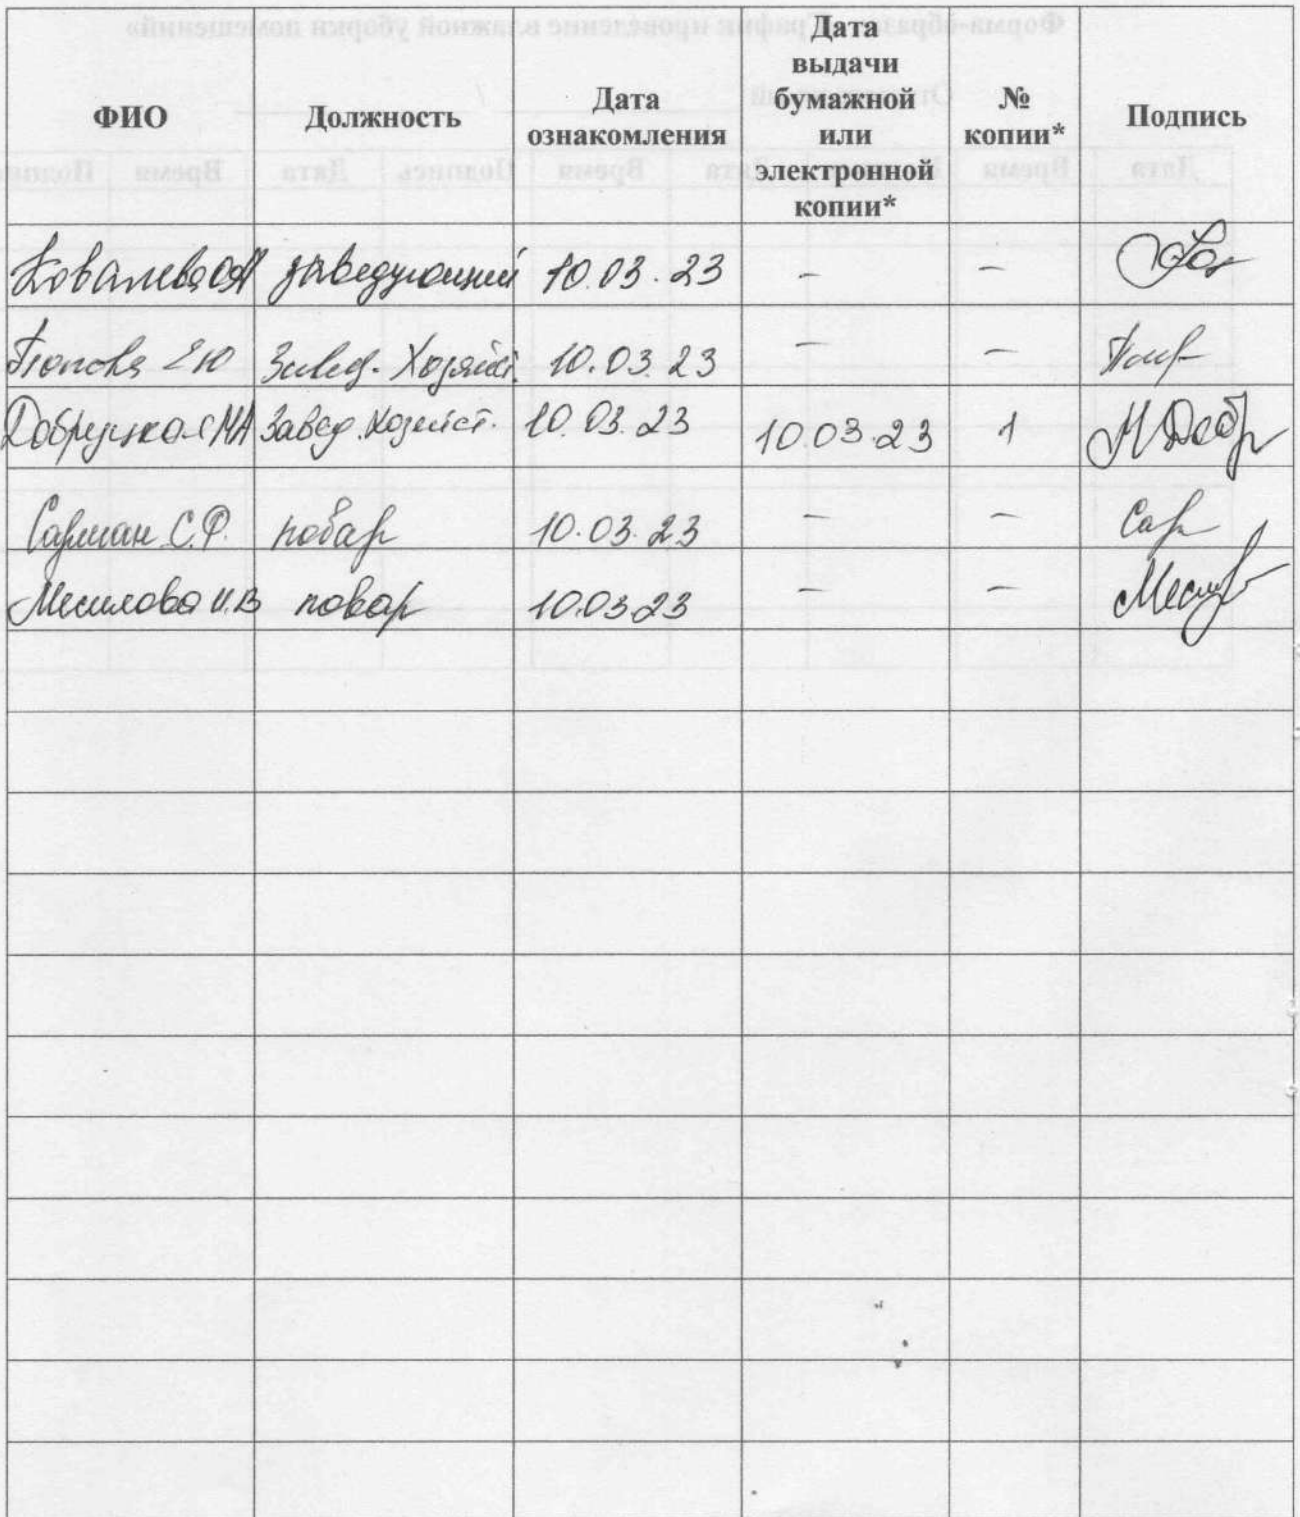 ФИО
Должность
Дата
ознакомления
Дата
выдачи
бумажной
или
электронной
копии*
№
копии*
Подпись
Ковалева ОА заведующий 10.03.23 – –
Попова Е Ю Завед. Хозяйст. 10.03.23 – –
Добруцкая МА Завед. Хозяйст. 10.03.23 10.03.23 1
Сарман С.Ф. повар 10.03.23 – –
И.В повар 10.03.23 – –